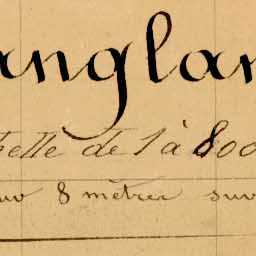 anglar
helle de 1 à 800
ur 8 mètres sur